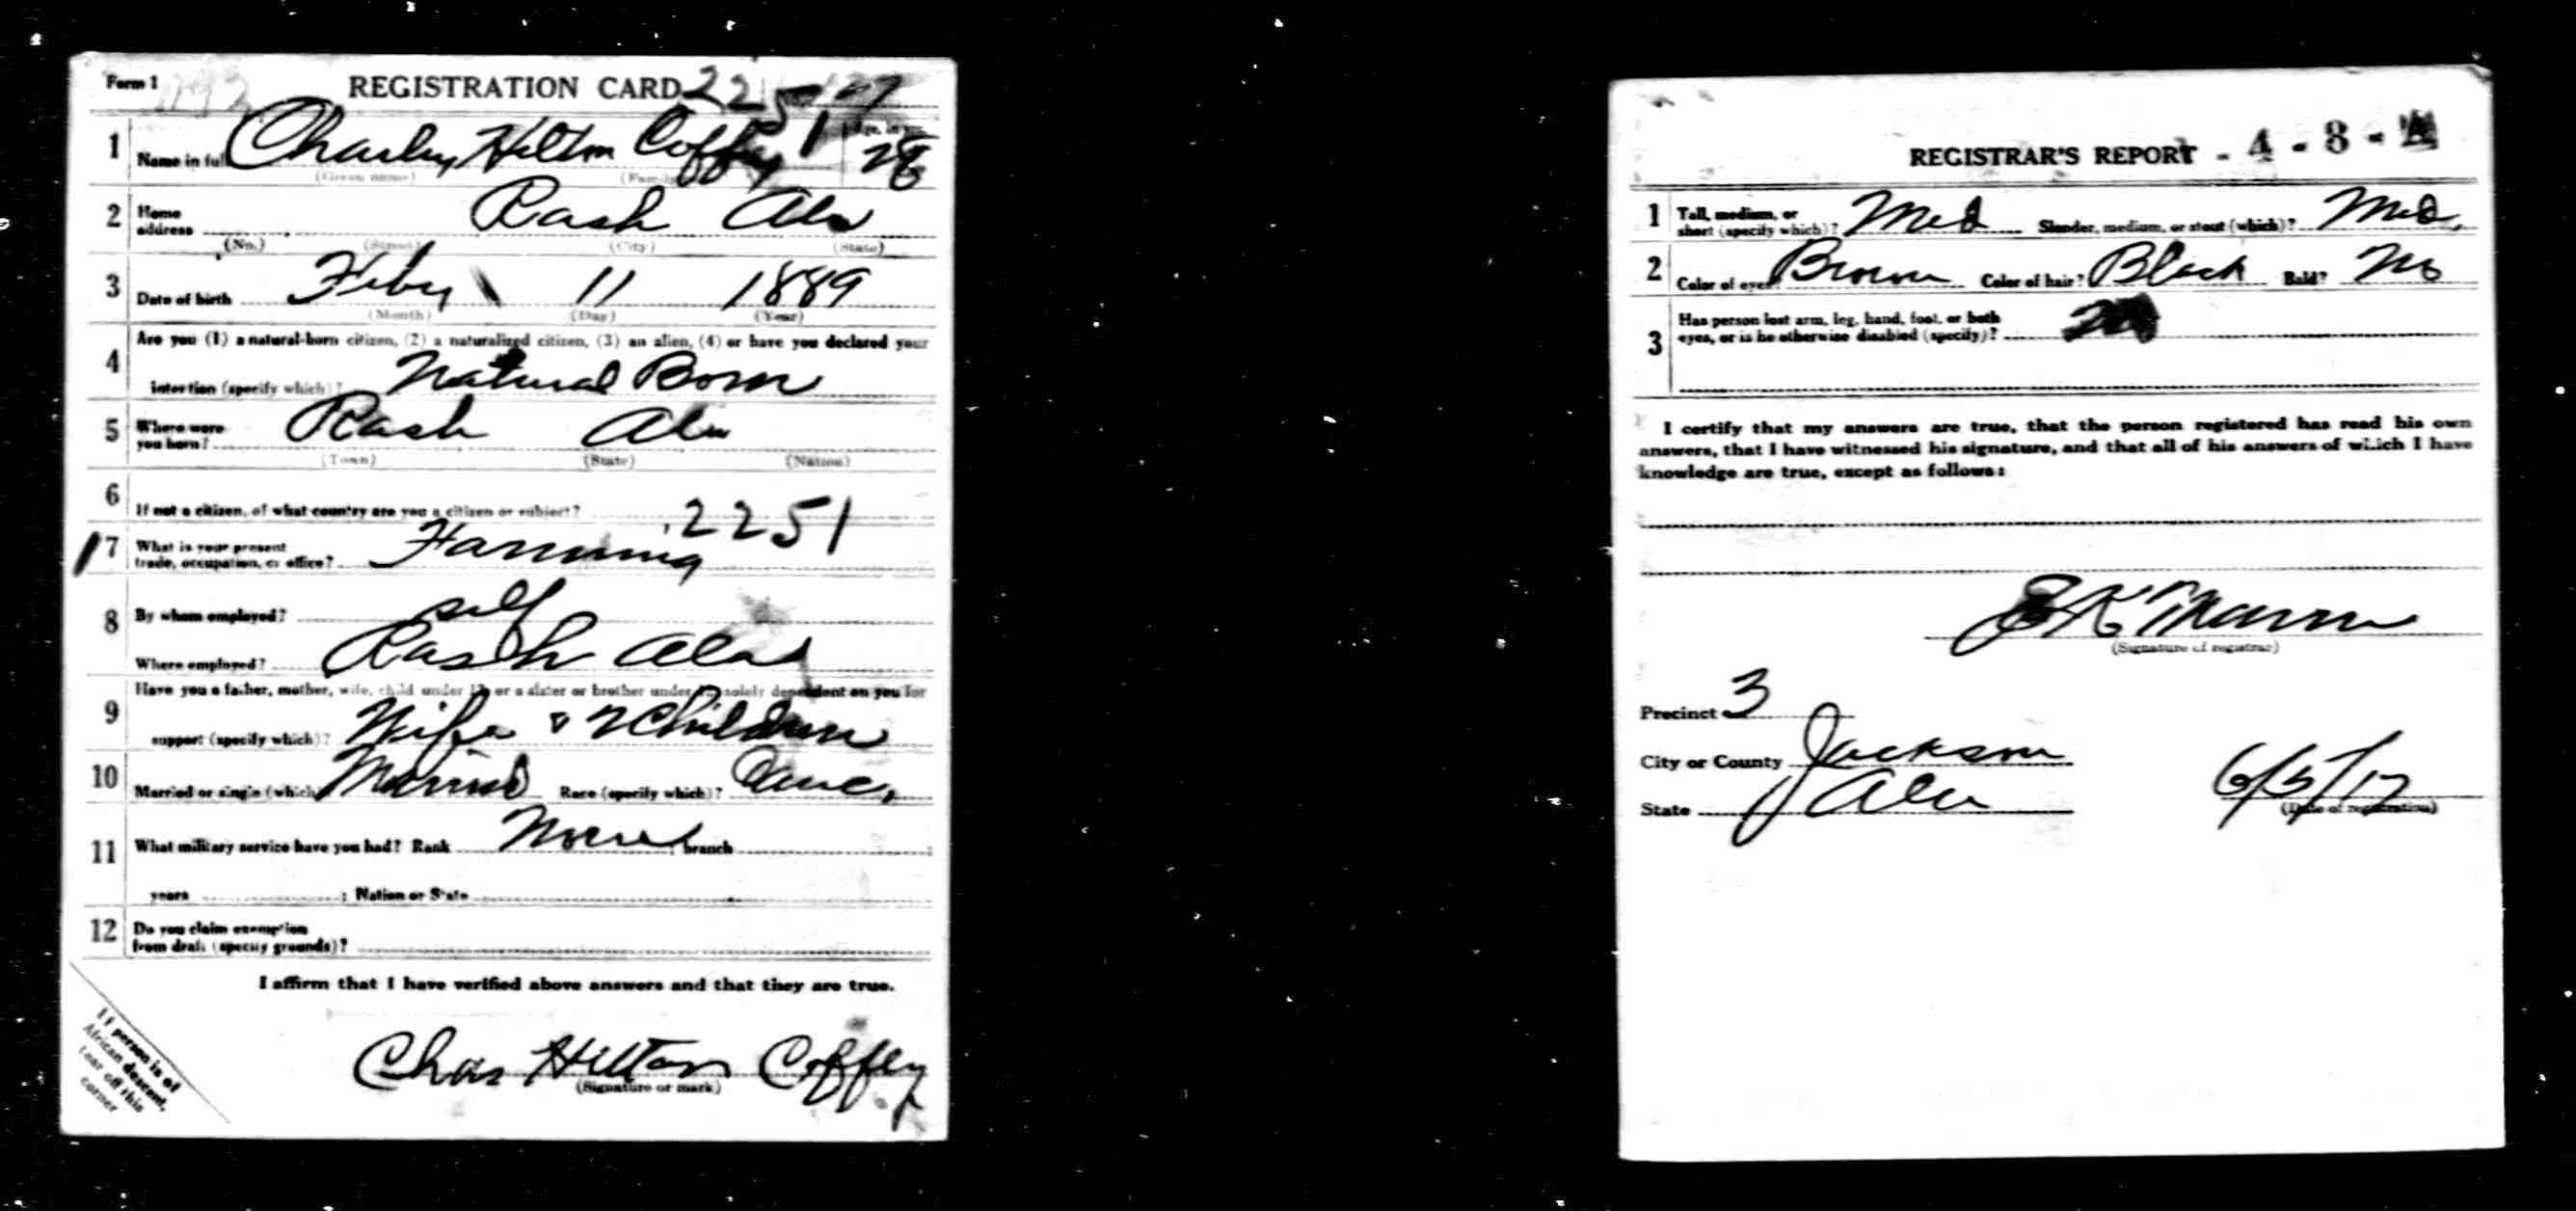 Form 1 REGISTRATION CARD 2251 27
1 Name in full Charley Hilton Coffey Age, in yrs. 28
(Given name) (Family
2 Home address Rash Ala
(No.) (Street) (City) (State)
3 Date of birth Feby 11 1889
(Month) (Day) (Year)
4 Are you (1) a natural-born citizen, (2) a naturalized citizen, (3) an alien, (4) or have you declared your
intention (specify which)? Natural Born
5 Where were you born? Rash Ala
(Town) (State) (Nation)
6 If not a citizen, of what country are you a citizen or subject?
2251
7 What is your present trade, occupation, or office? Farming
8 By whom employed? self
Where employed? Rash Ala
9 Have you a father, mother, wife, child under 12, or a sister or brother under 12, solely dependent on you for
support (specify which)? Wife & 2 Children
10 Married or single (which) Married Race (specify which)? Cauc,
11 What military service have you had? Rank None branch
years ; Nation or State
12 Do you claim exemption from draft (specify grounds)?
I affirm that I have verified above answers and that they are true.
Chas Hilton Coffey
(Signature or mark)
If person is of
African descent,
tear off this
corner
REGISTRAR'S REPORT - 4 - 8 - A
1 Tall, medium, or short (specify which)? Med Slender, medium, or stout (which)? Med,
2 Color of eyes? Brown Color of hair? Black Bald? No
3 Has person lost arm, leg, hand, foot, or both eyes, or is he otherwise disabled (specify)? No
I certify that my answers are true, that the person registered has read his own
answers, that I have witnessed his signature, and that all of his answers of which I have
knowledge are true, except as follows:
(Signature of registrar)
Precinct 3
City or County Jackson
State Ala 6/5/17
(Date of registration)